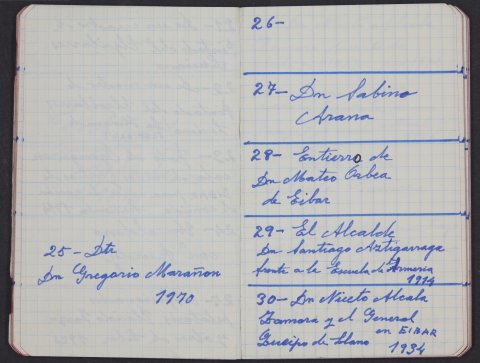 25 - Dtr
Dn Gregorio Marañon
1970
26-
27- Dn Sabino
Arana
28- Entierro de
Dn Mateo Orbea
de Eibar
29- El Alcalde
Dn Santiago Aztigarraga
frente a la Escuela de Armeria
1914
30- Dn Niceto Alcala
Zamora y el General
en EIBAR
Queipo de Llano
1934